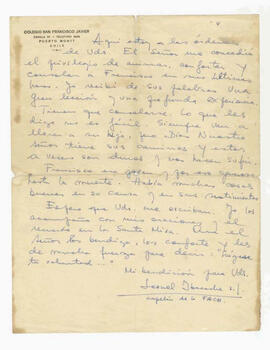 COLEGIO SAN FRANCISCO JAVIER
PUERTO MONTT
CHILE
Aquí estoy a las órdenes
de Uds. El Señor me concedió
el privilegio de animar, confortar y
consolar a Francisco en sus últimas
horas. Yo recibí de sus palabras una
gran lección y una profunda
Tienen que consolarse. Lo que les
digo no es fácil. Siempre van a
llorar a su hijo, pero Dios Nuestro
Señor tiene sus caminos y estos
a veces son duros y nos hacen sufrir.
Francisco
hasta la muerte. Había muchas cosas
buenas en su alma y en sus sentimientos
Espero que Uds. me escriban. Yo los
acompaño con mis oraciones y el
recuerdo en la Santa Misa. Que el
Señor los bendiga, los conforte y les
dé mucha fuerza para decir: "Hágase
tu voluntad..."
Mi bendición para Uds.
Leonel
capellán de la FACH.